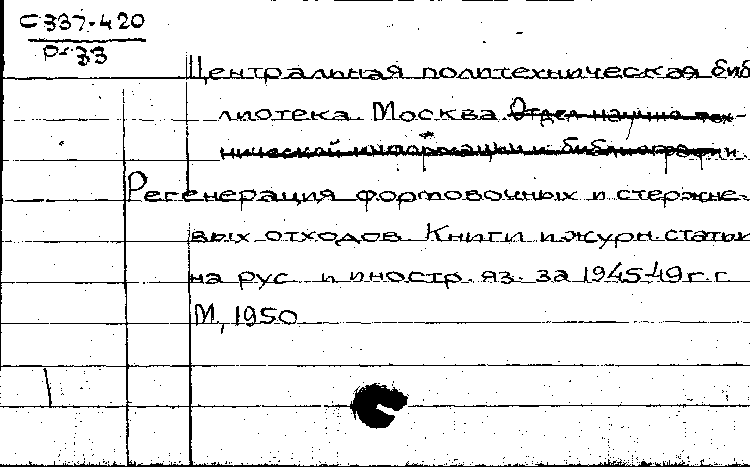 С337-420
Р-33
Центральная политехническая биб
лиотека. Москва. Отдел научно тех-
нической информации и библиографии.
Регенерация формовочных и стержне-
вых отходов. Книги и журн. статьи
на рус. и иностр. яз. за 1945-49 г.г.
М., 1950